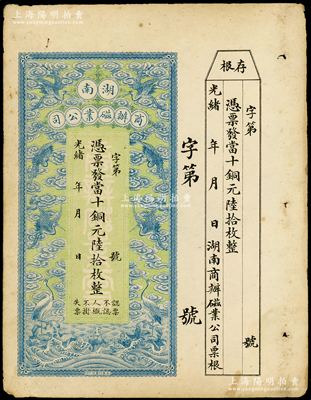 上海陽明拍賣有限公司
湖南
商辦磁業公司
字第 號
憑票發當十銅元陸拾枚整
光緒 年 月 日
認票不認人
失票不掛
字第 號
存根
字第 號
憑票發當十銅元陸拾枚整
光緒 年 月 日湖南商辦磁業公司票根
上海陽明拍賣有限公司